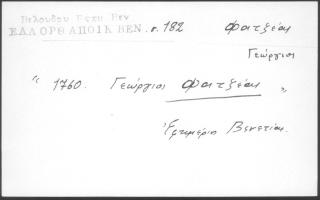 Βελουδου Εφημ Βεν
ΕΛΛ ΟΡΘ ΑΠΟΙΚ ΒΕΝ. σ. 182 Φατζέας
Γεώργιος
“ 1760. Γεώργιος Φατζέας „
Ἐφημέριος Βενετίας.